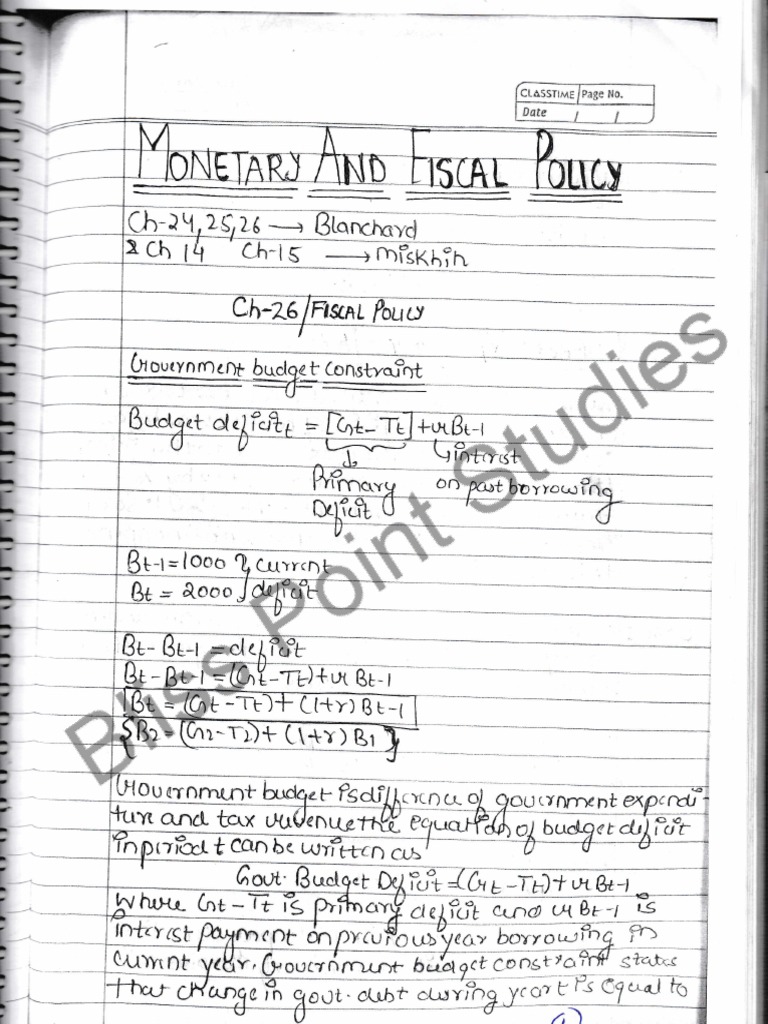 CLASSTIME Page No.
Date / /
MONETARY AND FISCAL POLICY
Ch-24, 25, 26 → Blanchard
& Ch 14 Ch-15 → Miskhin
Ch-26/FISCAL POLICY
Government budget constraint
Budget deficit_t = [G_t - T_t] + rB_t-1
Primary Deficit
interest on past borrowing
B_t-1 = 1000 } current
B_t = 2000 } deficit
B_t - B_t-1 = deficit
B_t - B_t-1 = (G_t - T_t) + r B_t-1
B_t = (G_t - T_t) + (1+r) B_t-1
{B_2 = (G_2 - T_2) + (1+r) B_1}
Government budget is difference of government expendi-
ture and tax revenue the equation of budget deficit
in period t can be written as
Govt. Budget Deficit = (G_t - T_t) + r B_t-1
where G_t - T_t is primary deficit and r B_t-1 is
interest payment on previous year borrowing in
current year. Government budget constraint states
that change in govt. debt during year t is equal to
Bliss Point Studies